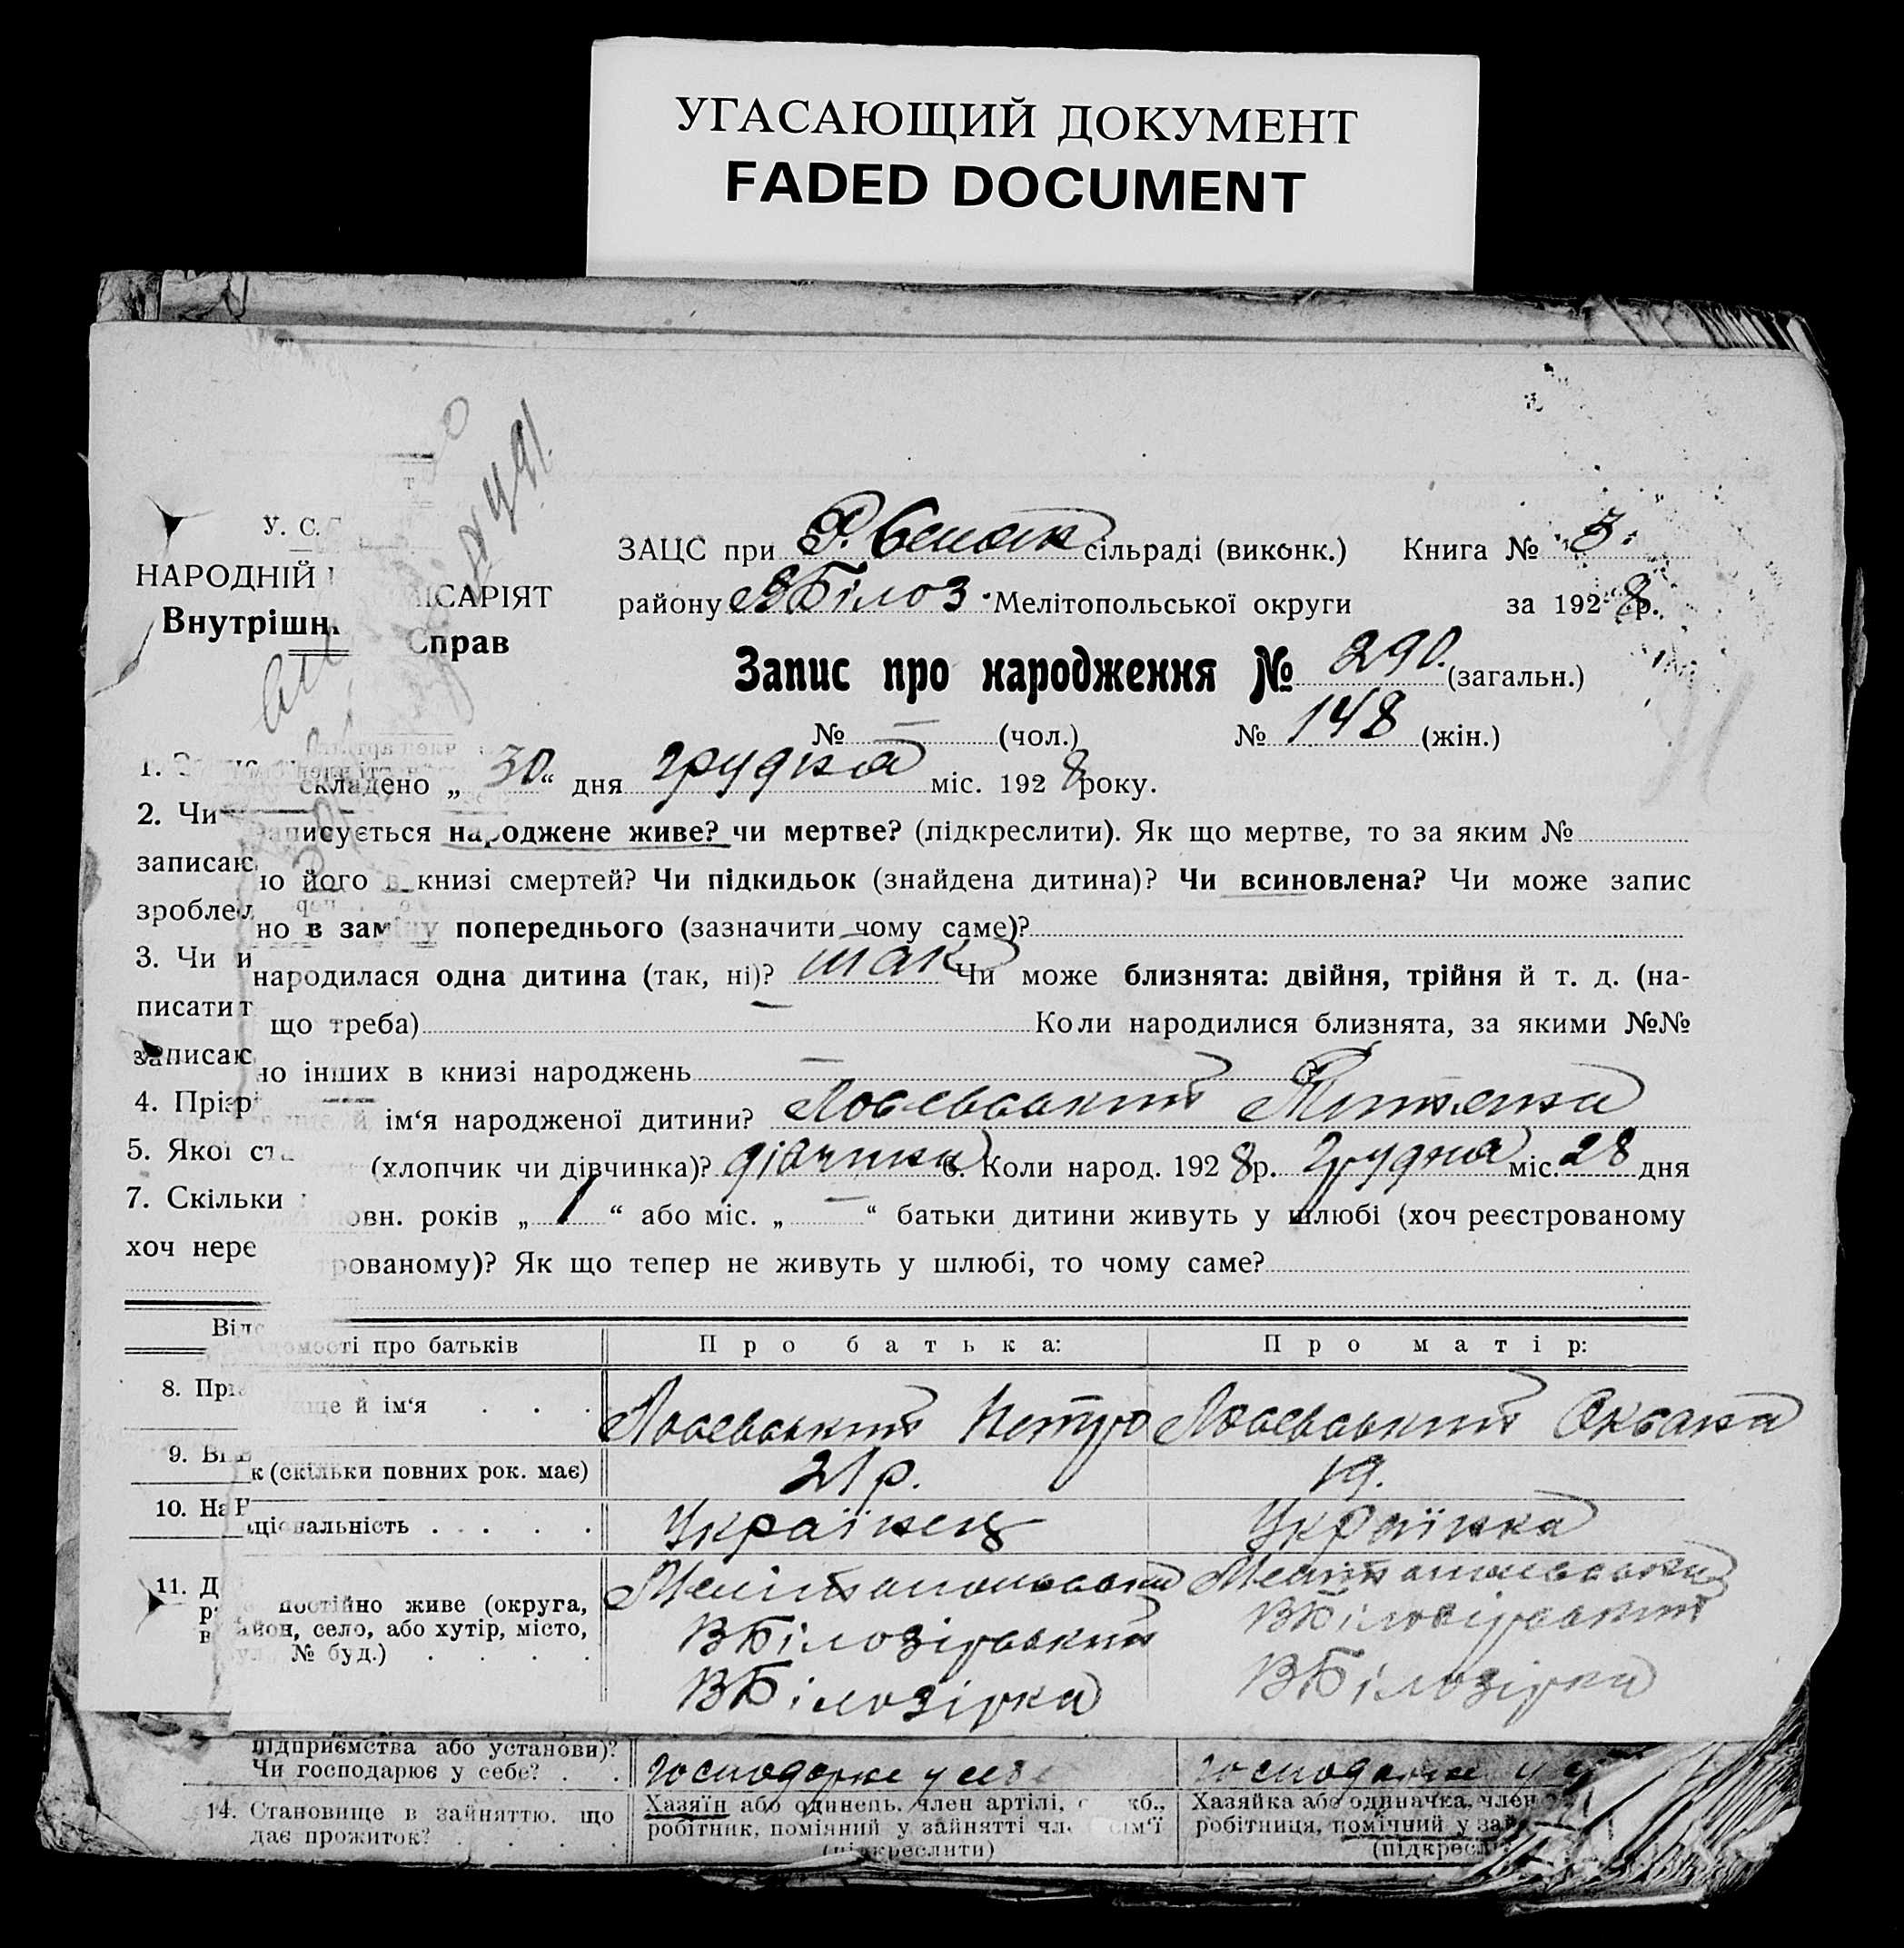 УГАСАЮЩИЙ ДОКУМЕНТ
FADED DOCUMENT
У. С.
НАРОДНІЙ ІСАРІЯТ
Внутрішн. Справ
ЗАЦС при Р. сільраді (виконк.) Книга № 3.
району ВБілоз. Мелітопольської округи за 1928 р.
Запис про народження № 290. (загальн.)
№ — (чол.) № 148 (жін.)
1. складено „30“ дня грудня міс. 1928 року.
2. Чи записується народжене живе? чи мертве? (підкреслити). Як що мертве, то за яким №
записано його в книзі смертей? Чи підкидьок (знайдена дитина)? Чи всиновлена? Чи може запис
зроблено в заміну попереднього (зазначити чому саме)?
3. Чи народилася одна дитина (так, ні)? так Чи може близнята: двійня, трійня й т. д. (на-
писати що треба) — Коли народилися близнята, за якими №№
записано інших в книзі народжень —
4. Прізвище й ім‘я народженої дитини?
5. Якої статі (хлопчик чи дівчинка)? дівчинка 6. Коли народ. 1928 р. Грудня міс. 28 дня
7. Скільки повн. років „1“ або міс. „—“ батьки дитини живуть у шлюбі (хоч реєстрованому
хоч нереєстрованому)? Як що тепер не живуть у шлюбі, то чому саме?
Відомості про батьків Про батька: Про матір:
8. Прізвище й ім‘я . . . Петро Оксана
9. Вік (скільки повних рок. має) 21 р. 19.
10. Національність . . . . . Українець Українка
11. Де постійно живе (округа, Мелітопольська Мелітопольська
район, село, або хутір, місто, ВБілозірський ВБілозірський
вул., № буд.) . . . . ВБілозірка ВБілозірка
підприємства або установи)?
Чи господарює у себе? . . господарює у себе господарює у
14. Становище в зайняттю, що Хазяїн або одинець, член артілі, кб., Хазяйка або одиначка, член
дає прожиток? . . . . робітник, помічний у зайнятті чл. сім‘ї робітниця, помічний у зай
(підкреслити) (підкресл